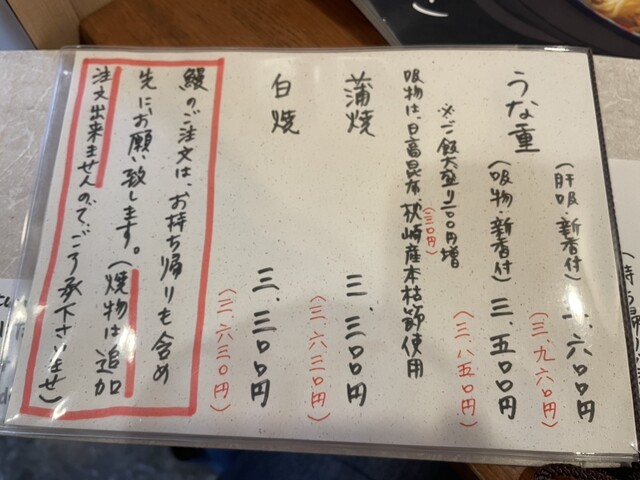 うな重
(肝吸・新香付) 三、六〇〇円
(三、九六〇円)
(吸物・新香付) 三、五〇〇円
(三、八五〇円)
※ご飯大盛り二〇〇円増
(二二〇円)
吸物は、日高昆布、枕崎産本枯節使用
蒲焼 三、三〇〇円
(三、六三〇円)
白焼 三、三〇〇円
(三、六三〇円)
鰻のご注文は、お持ち帰りも含め
先にお願い致します。(焼物は追加
注文出来ませんのでご了承下さいませ)